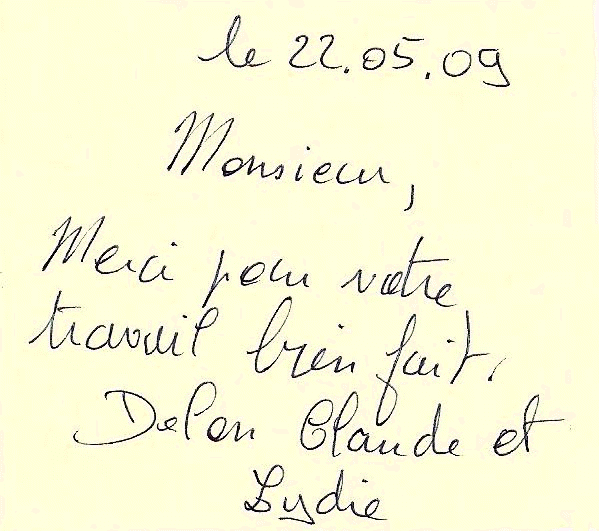 le 22.05.09
Monsieur,
Merci pour votre
travail bien fait.
Delon Claude et
Lydie